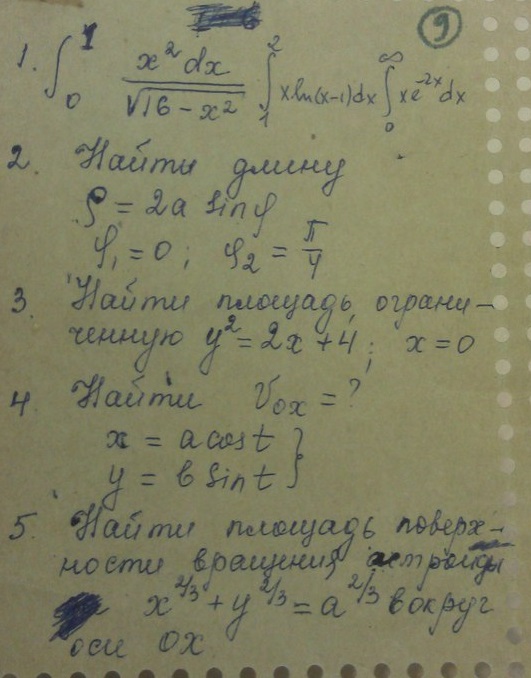 9
1. ∫₀¹ x² dx / √(16 - x²) ∫₁² x ln(x-1)dx ∫₀^∞ x e^(-2x) dx
2. Найти длину
ρ = 2a sin φ
φ₁ = 0 ; φ₂ = π/4
3. Найти площадь, ограни-
ченную y² = 2x + 4 ; x = 0
4 Найти Vox = ?
x = a cos t }
y = b sin t }
5. Найти площадь поверх-
ности вращения астроиды
x^(2/3) + y^(2/3) = a^(2/3) вокруг
оси OX